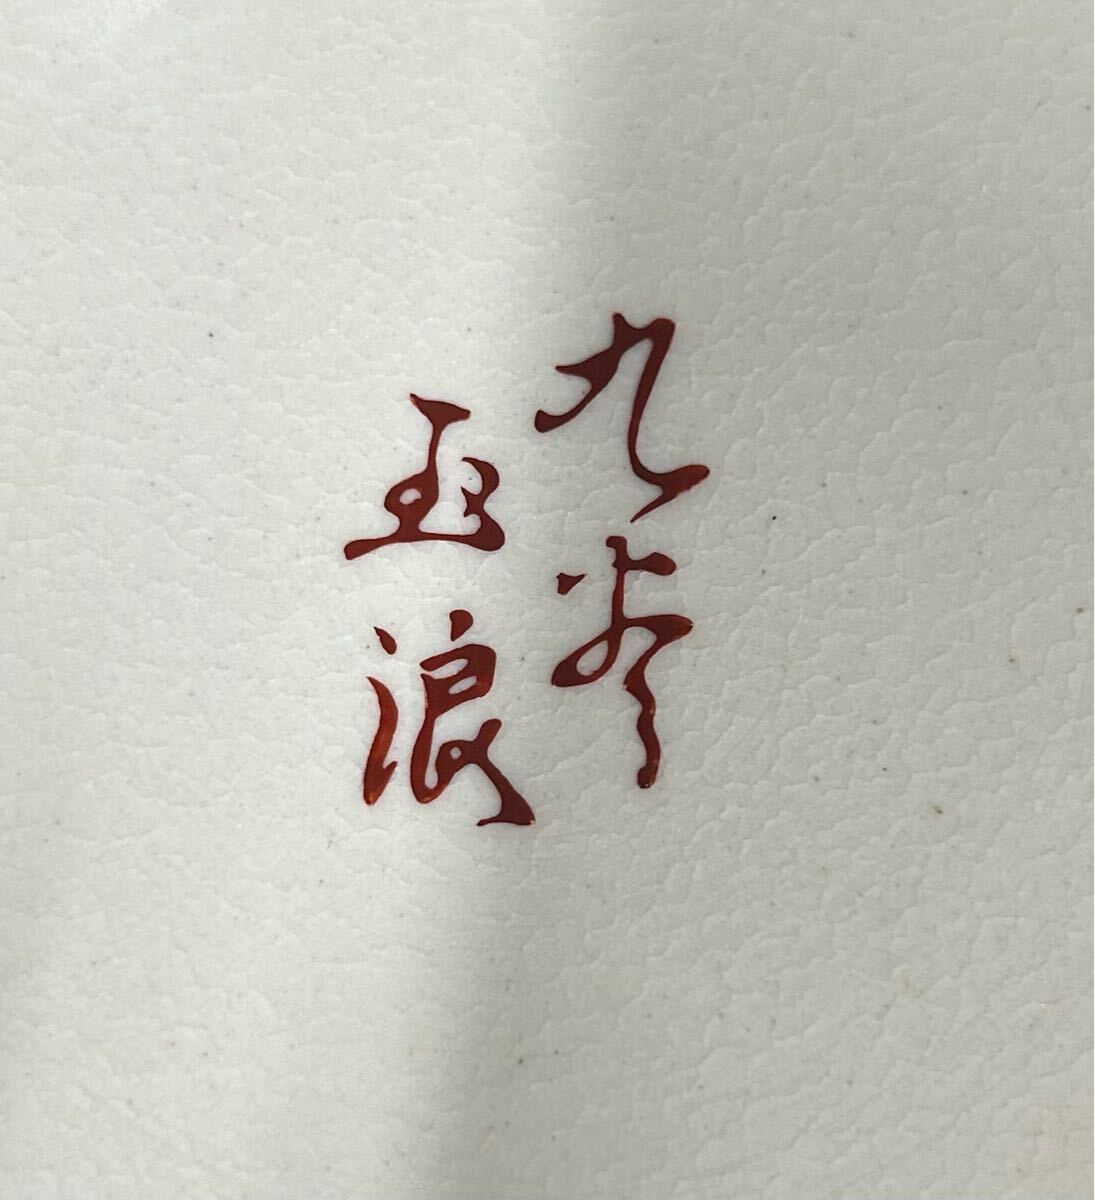 九谷
玉浪